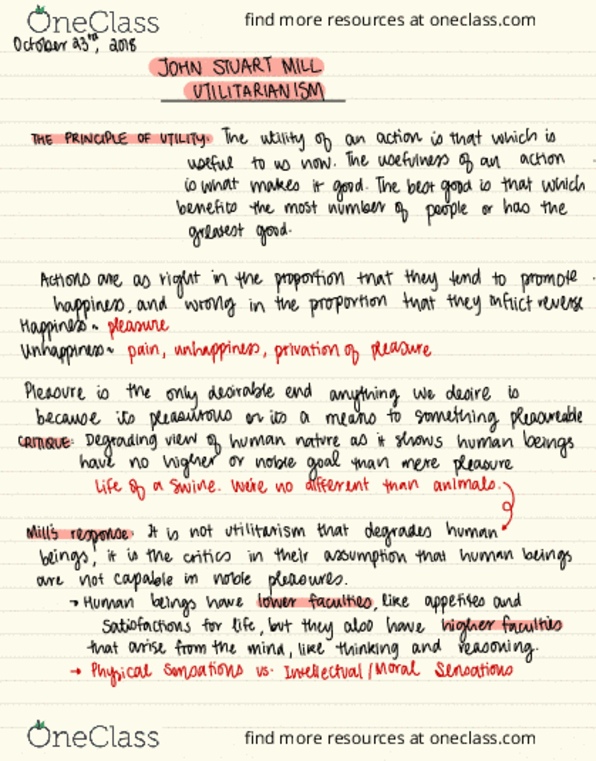 OneClass find more resources at oneclass.com
October 23rd, 2018
JOHN STUART MILL
UTILITARIANISM
THE PRINCIPLE OF UTILITY: The utility of an action is that which is
useful to us now. The usefulness of an action
is what makes it good. The best good is that which
benefits the most number of people or has the
greatest good.
Actions are as right in the proportion that they tend to promote
happiness, and wrong in the proportion that they inflict reverse
Happiness ~ pleasure
Unhappiness ~ pain, unhappiness, privation of pleasure
Pleasure is the only desirable end anything we desire is
because its pleasurous or its a means to something pleasureable
CRITIQUE: Degrading view of human nature as it shows human beings
have no higher or noble goal than mere pleasure
Life of a Swine. We're no different than animals.
Mill's response: It is not utilitarism that degrades human
beings, it is the critics in their assumption that human beings
are not capable in noble pleasures.
→ Human beings have lower faculties, like appetises and
satisfactions for life, but they also have higher faculties
that arise from the mind, like thinking and reasoning.
→ Physical Sensations vs. Intellectual/Moral Sensations
OneClass find more resources at oneclass.com